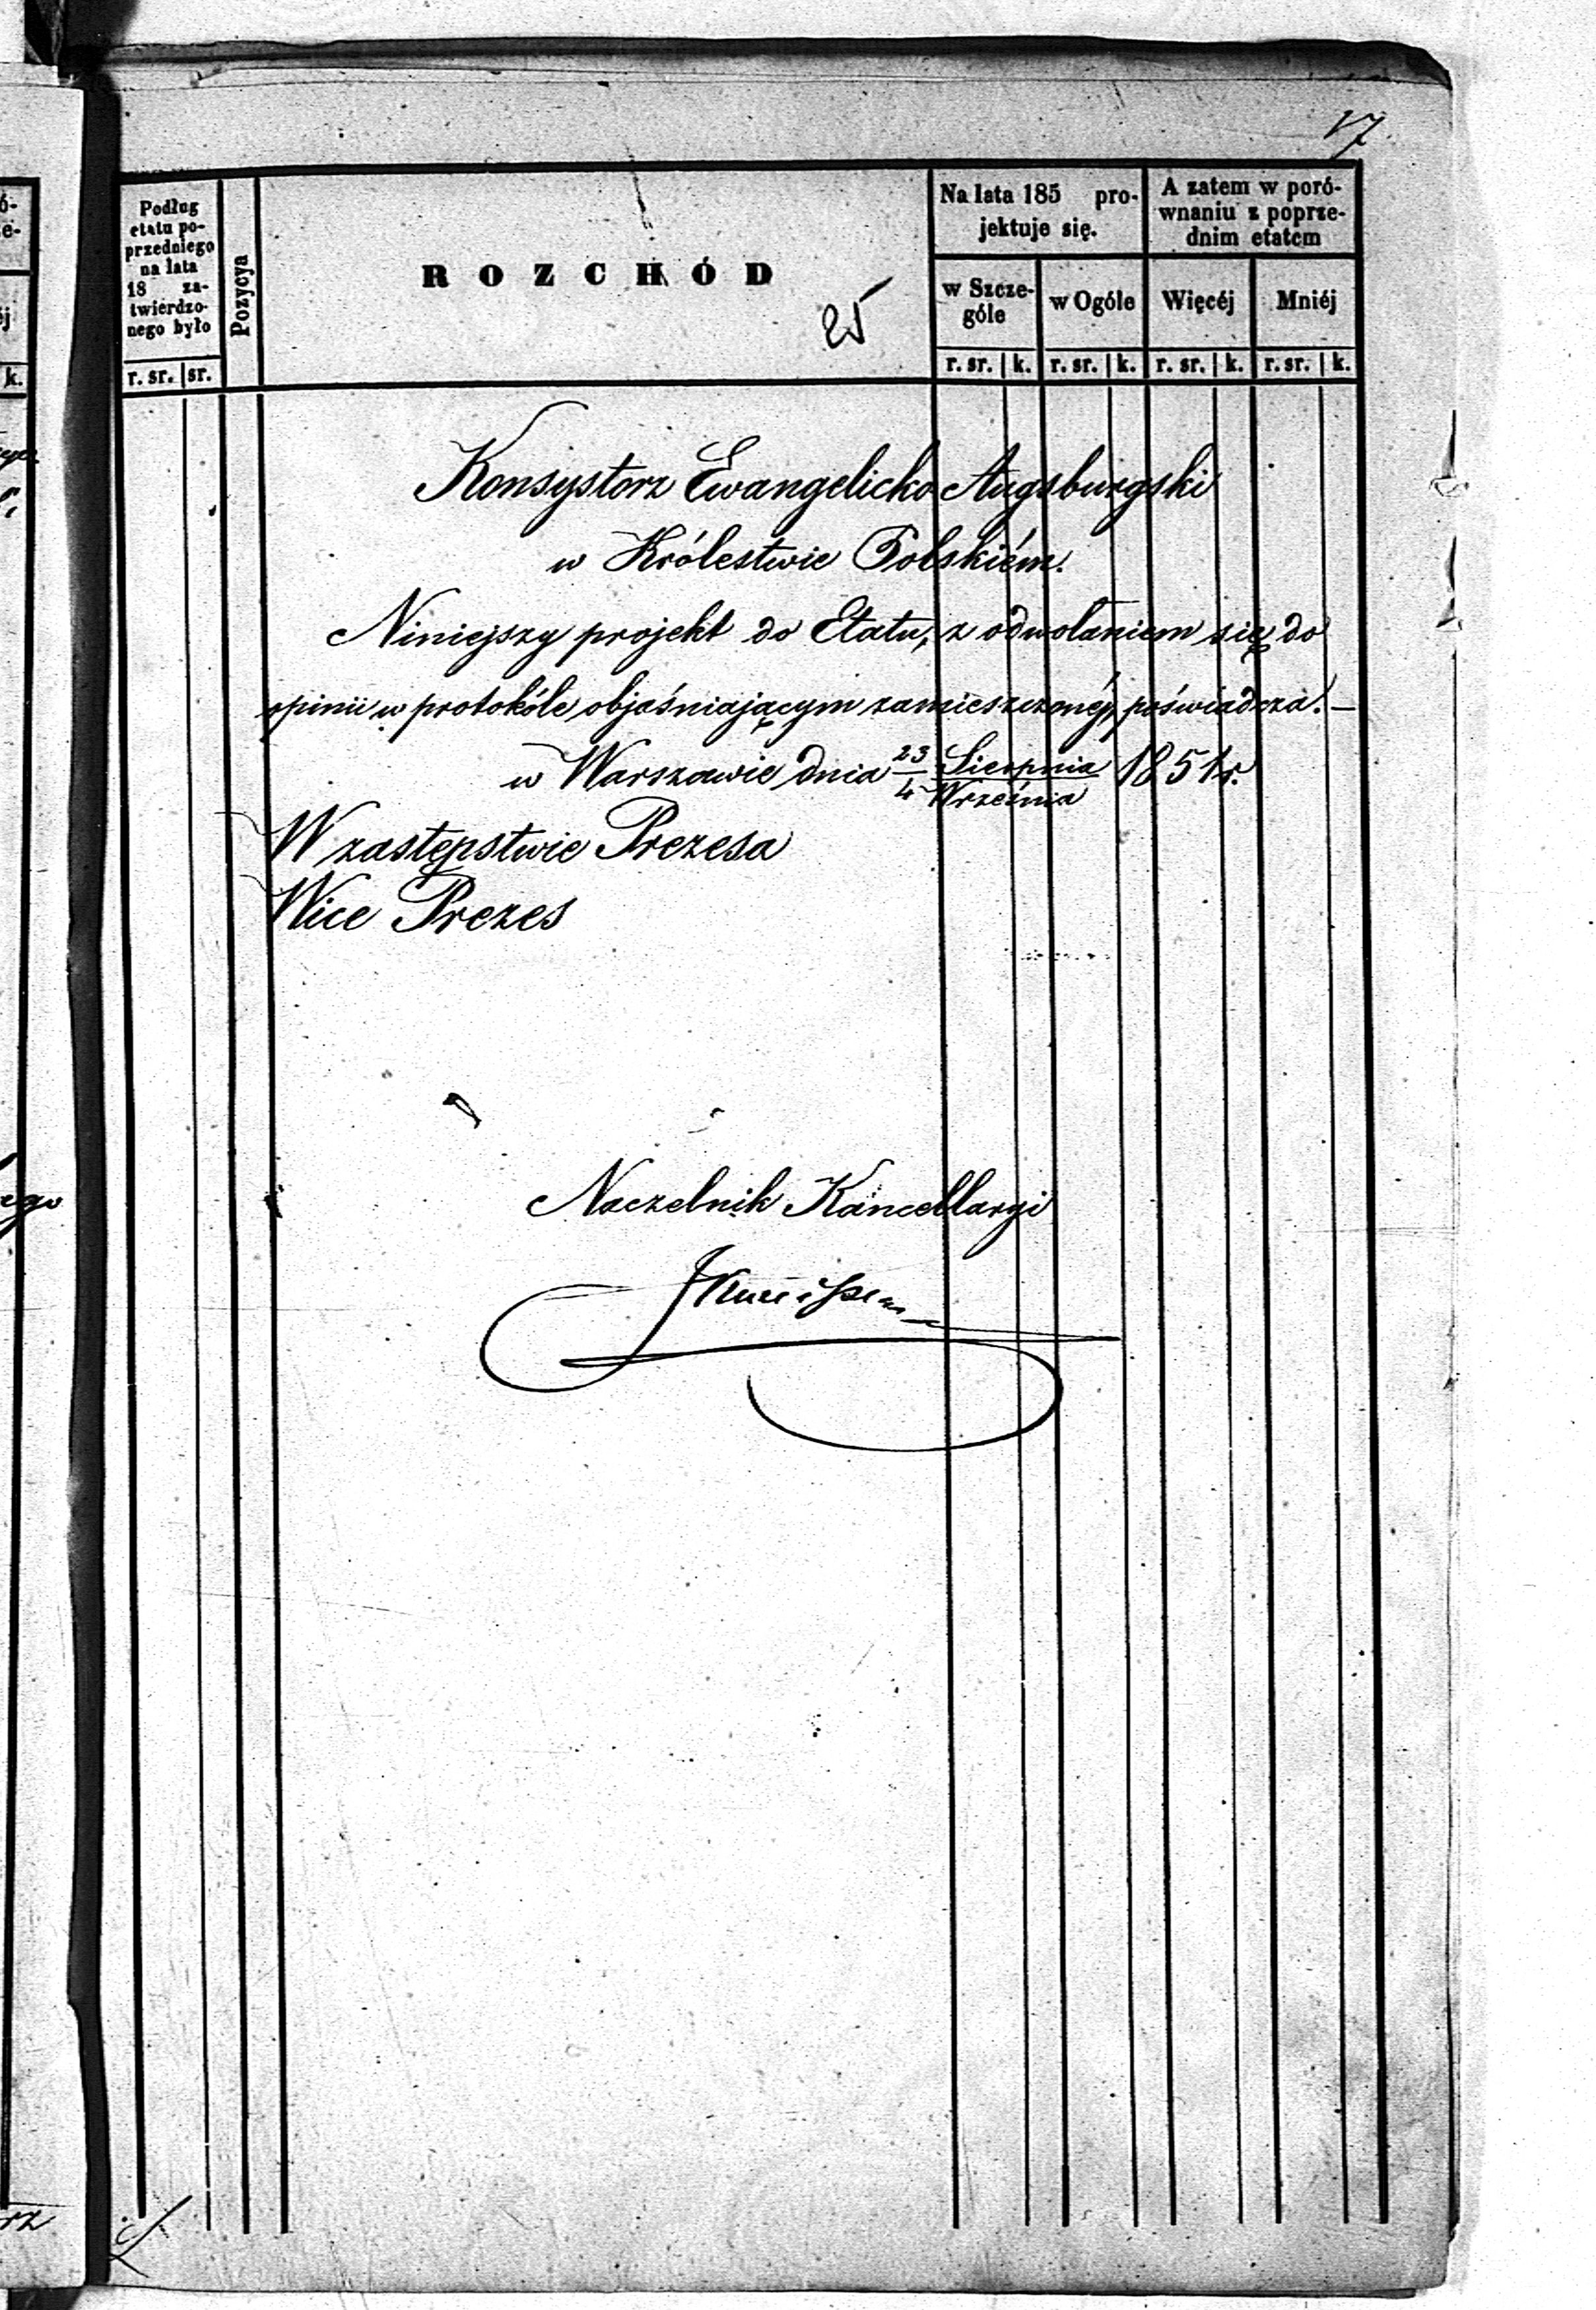 17
Podług
etatu po-
przedniego
na lata
18 za-
twierdzo-
nego było
r. sr. sr.
Pozycya
ROZCHÓD
25
Na lata 185 pro-
jektuje się.
A zatem w poró-
wnaniu z poprze-
dnim etatem
w Szcze-
góle
w Ogóle
Więcéj
Mniéj
r. sr. k. r. sr. k. r. sr. k. r. sr. k.
Konsystorz Ewangelicko Augsburgski
w Królestwie Polskiém.
Niniejszy projekt do Etatu, z odwołaniem się do
opinii w protokóle objaśniającym zamieszczonéj, poświadcza. —
w Warszawie dnia 23/4 Sierpnia/Września 1851 r.
W zastępstwie Prezesa
Wice Prezes
Naczelnik Kancellaryi